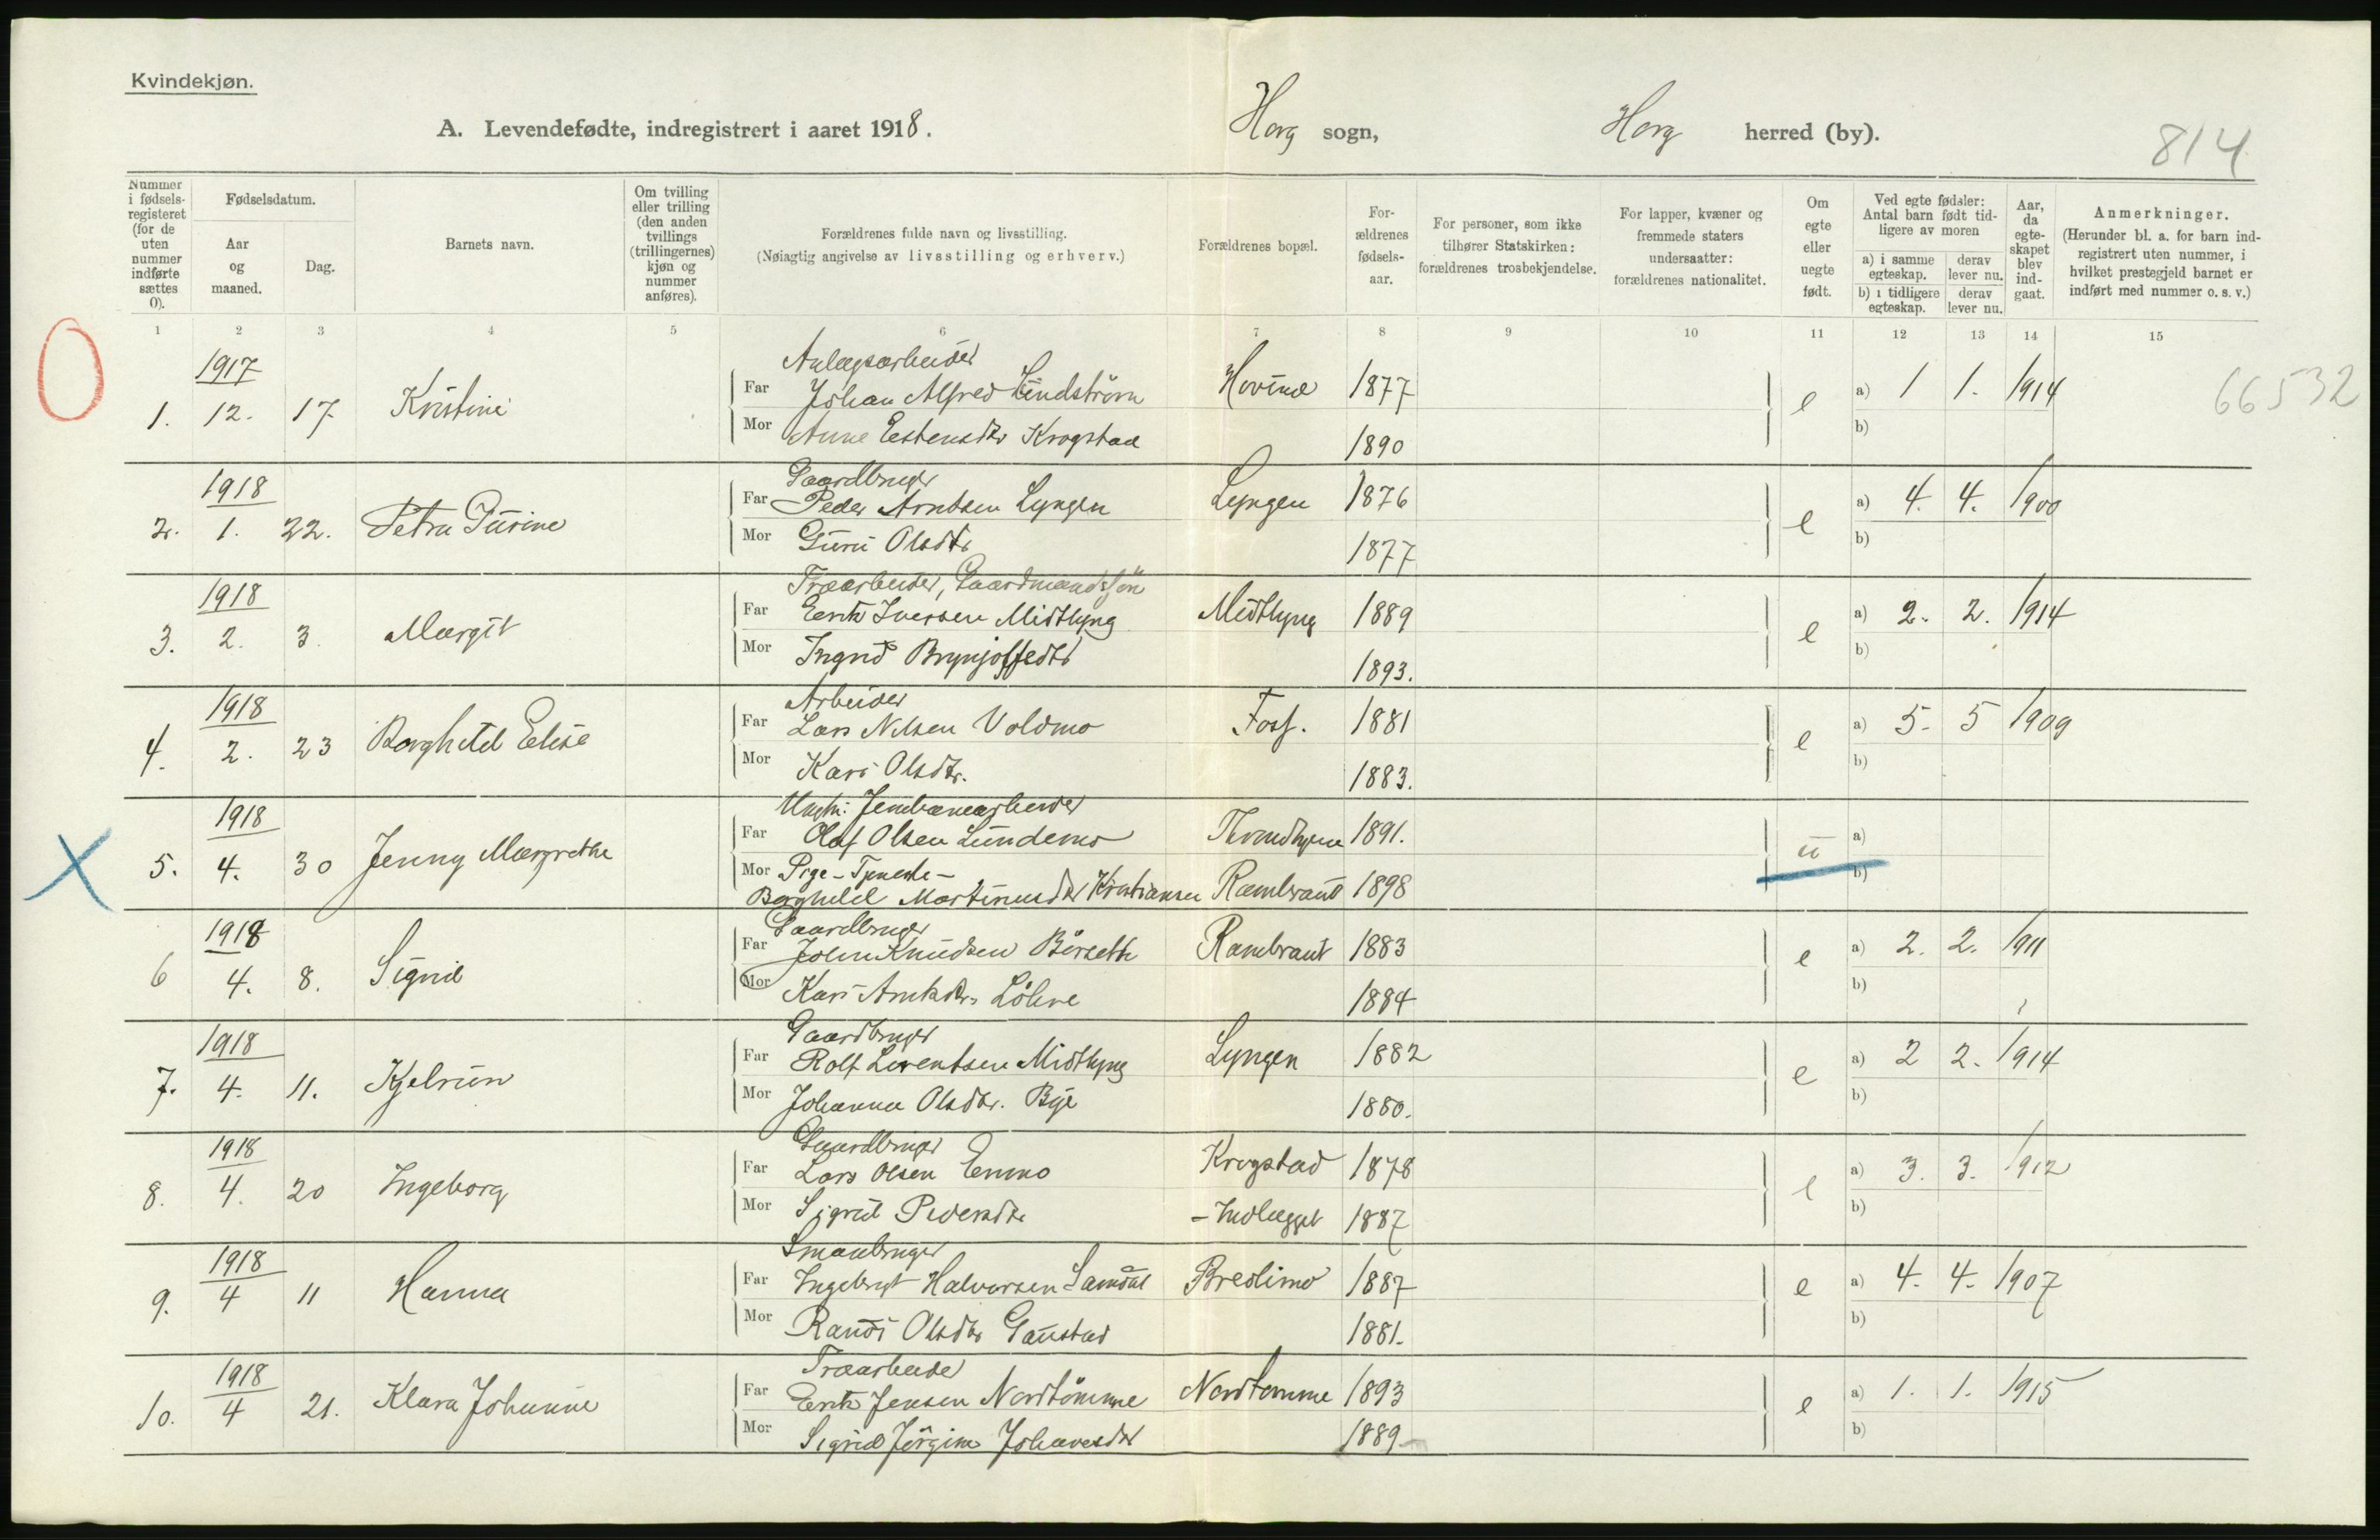 Kvindekjøn.
A. Levendefødte, indregistrert i aaret 1918. Horg sogn, Horg herred (by). 814
Nummer i fødselsregisteret (for de uten nummer indførte sættes 0).
Fødselsdatum.
Aar og maaned.
Dag.
Barnets navn.
Om tvilling eller trilling (den anden tvillings (trillingernes) kjøn og nummer anføres).
Forældrenes fulde navn og livsstilling.
(Nøiagtig angivelse av livsstilling og erhverv.)
Forældrenes bopæl.
Forældrenes fødselsaar.
For personer, som ikke tilhører Statskirken: forældrenes trosbekjendelse.
For lapper, kvæner og fremmede staters undersaatter: forældrenes nationalitet.
Om egte eller uegte født.
Ved egte fødsler: Antal barn født tidligere av moren
a) i samme egteskap. derav lever nu.
b) i tidligere egteskap. derav lever nu.
Aar, da egteskapet blev indgaat.
Anmerkninger.
(Herunder bl. a. for barn indregistrert uten nummer, i hvilket prestegjeld barnet er indført med nummer o. s. v.)
1 2 3 4 5 6 7 8 9 10 11 12 13 14 15
1917 Anlægsarbeider
1. 12. 17 Kristine Far Johan Alfred Lindstrøm Hovind 1877 e a) 1 1. 1914 66532
Mor Anne Estensdtr Krogstad 1890 b)
1918 Gaardbruger
2. 1. 22. Petra Gurine Far Peder Arntsen Lyngen Lyngen 1876 e a) 4. 4. 1900
Mor Guru Olsdtr 1877 b)
1918 Træarbeider, Gaardmandssøn
3. 2. 3 Margit Far Erik Iversen Midtlyng Midtlyng 1889 e a) 2. 2. 1914
Mor Ingrid 1893. b)
1918 Arbeider
4. 2. 23 Borghild Elise Far Lars Nilsen Voldmo Foss. 1881 e a) 5. 5 1909
Mor Kari Olsdtr. 1883. b)
1918 Ungk: Jernbanearbeider
5. 4. 30 Jenny Margrethe Far Olaf Olsen Lundemo Trondhjem 1891. u a)
Mor Pige - Tjeneste -
Borghild Martinusdtr Kristiansen Rambraut 1898 b)
1918 Gaardbruger
6 4. 8. Sigrid Far John Knudsen Børseth Rambraut 1883 e a) 2. 2. 1911
Mor Kari Arntsdtr. Løhre 1884 b)
1918 Gaardbruger
7. 4. 11. Kjelrun Far Rolf Lorentsen Midtlyng Lyngen 1882 e a) 2 2. 1914
Mor Johanna Olsdtr. Bye 1880. b)
1918 Gaardbruger
8. 4. 20 Ingeborg Far Lars Olsen Enmo Krogstad 1878 e a) 3. 3. 1912
Mor Sigrid Pedersdtr - Indlægget 1887 b)
1918 Smaabruger
9. 4 11 Hanna Far Ingebrigt Halvorsen Samdal Bredlimo 1887 e a) 4. 4. 1907
Mor Randi Olsdtr Gaustad 1881. b)
1918 Træarbeider
10. 4 21. Klara Johanne Far Erik Jensen Nordtømme Nordtømme 1893 e a) 1. 1. 1915
Mor Sigrid Jørgine Johanesdtr 1889 b)